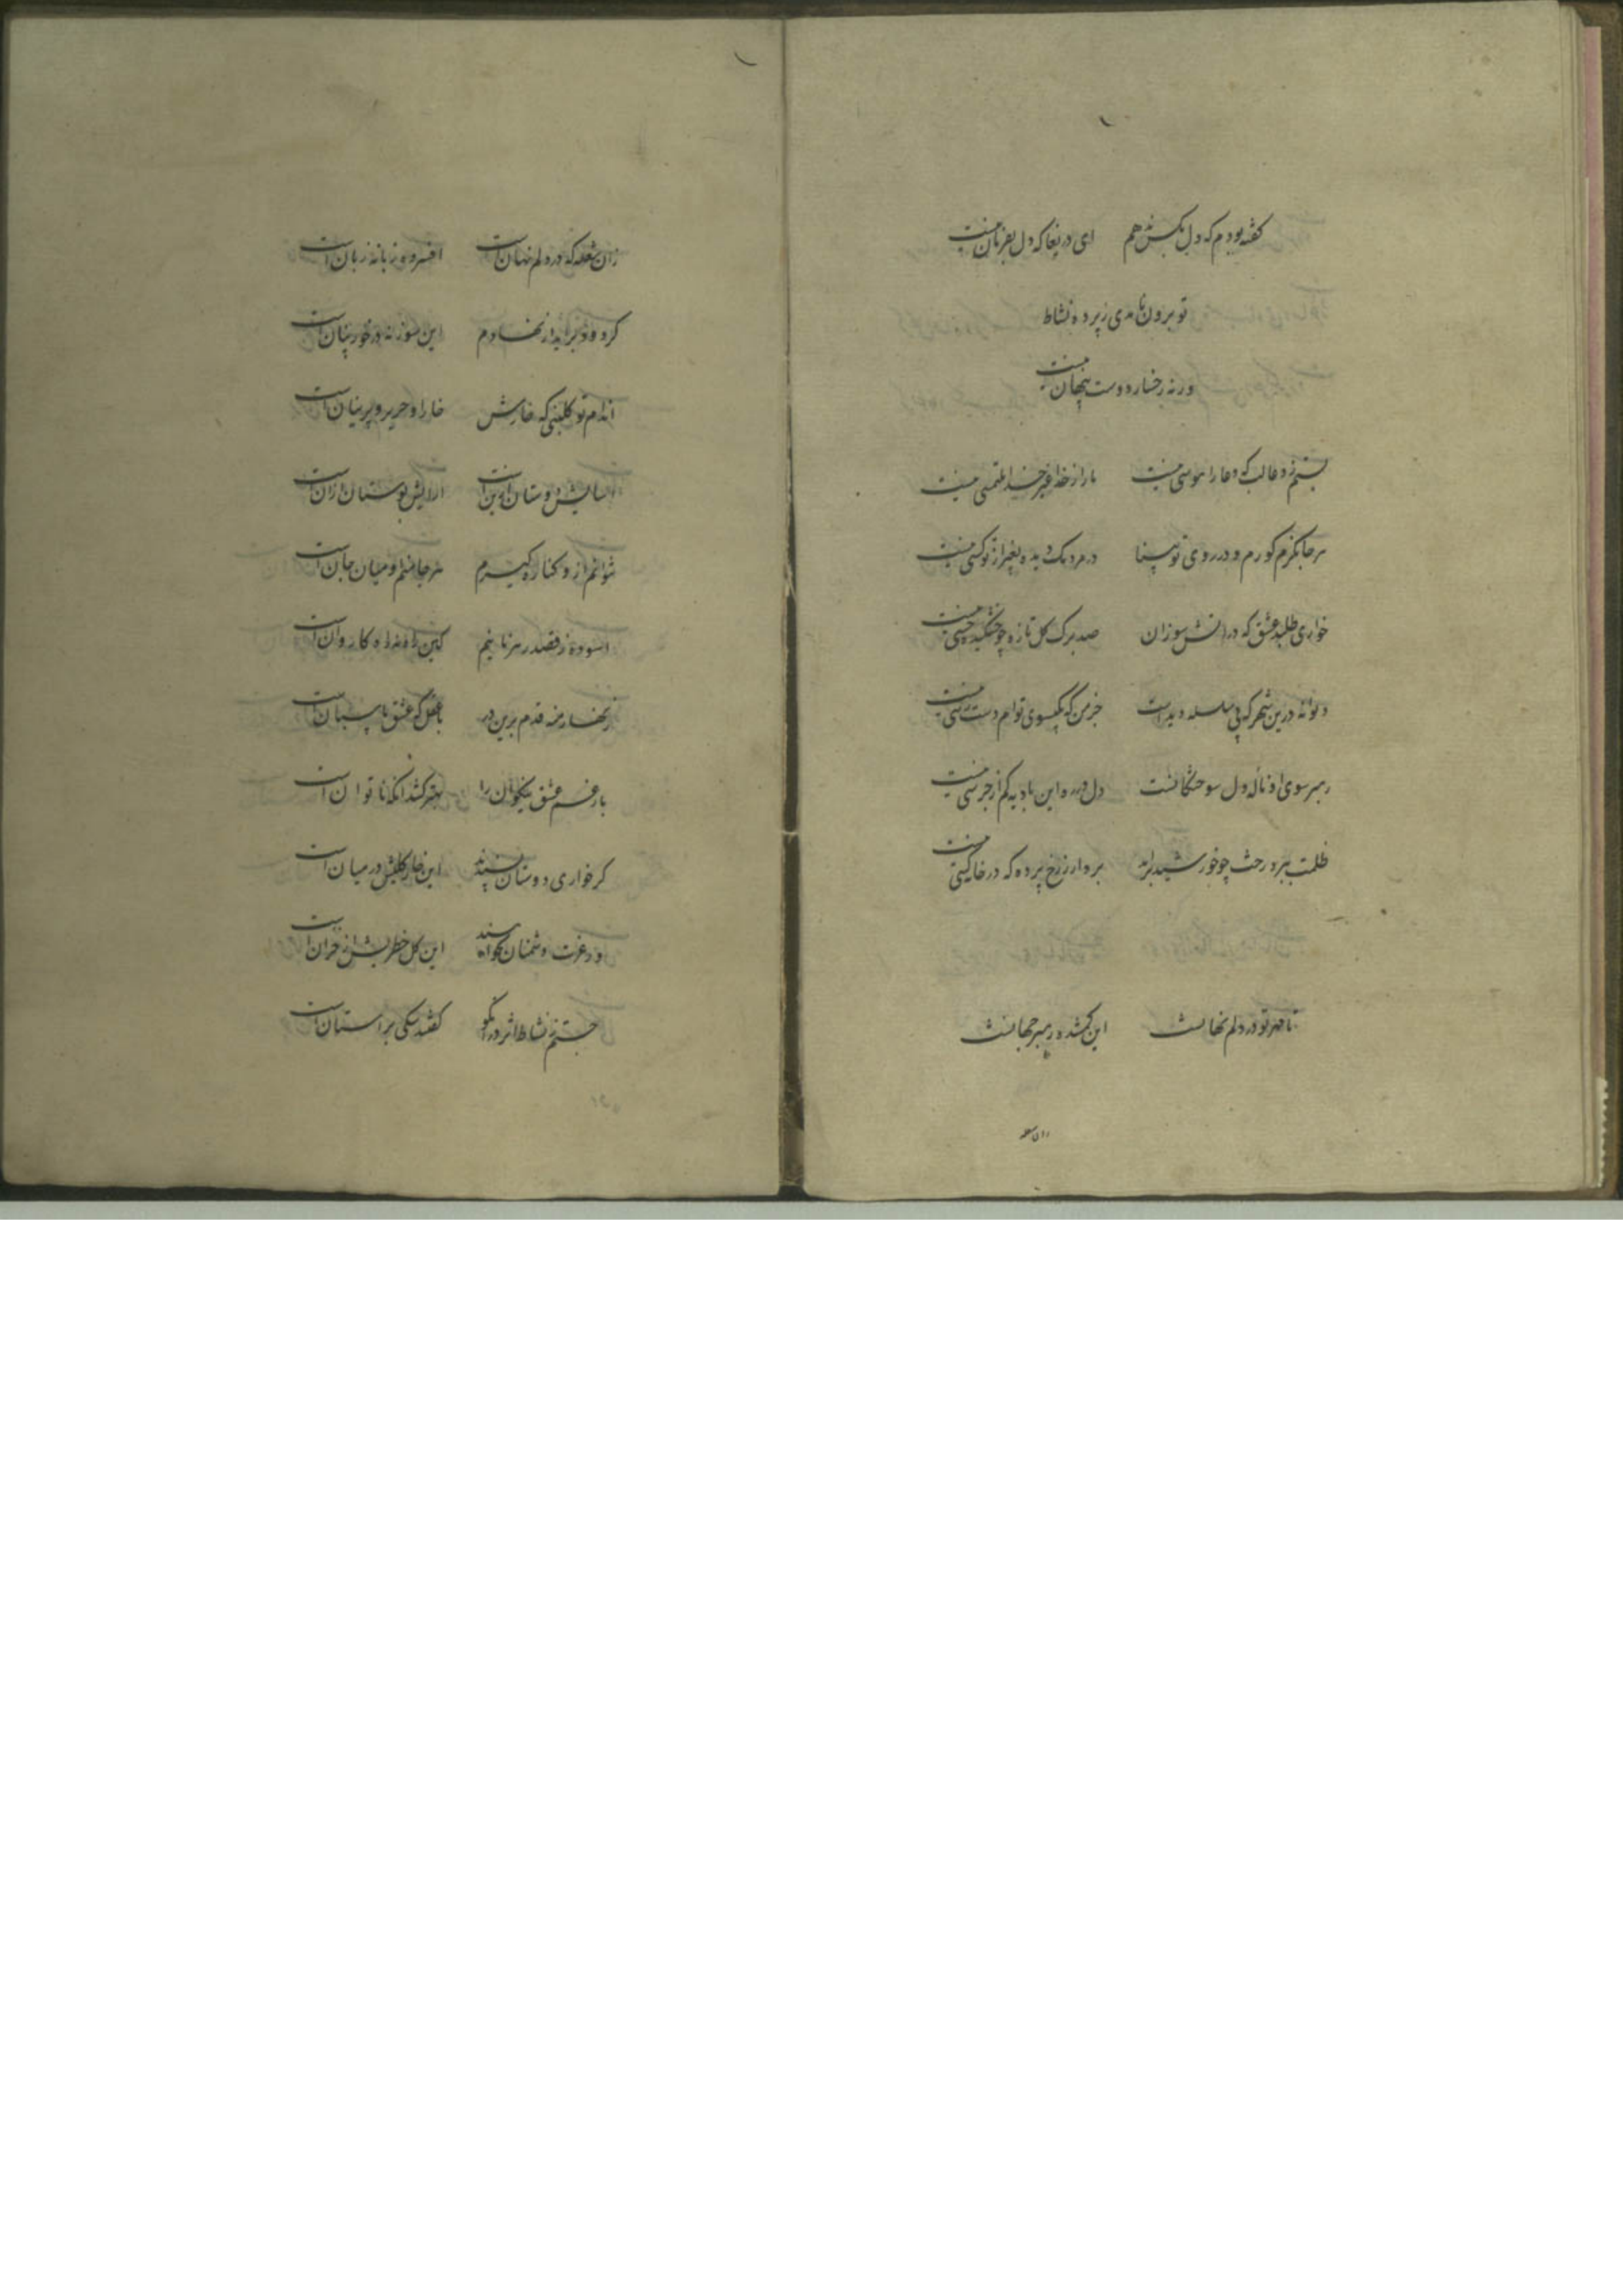 گفته بودم که دل بکس ندهم ای دریغا که دل بفرمان نیست
تو برون نامدی ز پرده نشاط
ورنه رخسار دوست پنهان نیست
بستم ز دعا لب که دعا را هوسی نیست ما را ز خدا غیر خدا ملتمسی نیست
هر جا نگرم کورم و در روی تو بینا در مردمک دیده بغیر از تو کسی نیست
خواری طلبد عشق که در آتش سوزان صد برک کل تازه چو خشکیده خسی نیست
دیوانه درین شهر که بی سلسله دیداست جز من که بکیسوی توام دست رسی نیست
رهبر سوی او ناله دل سوختکانست دل در ره این بادیه کم از جرسی نیست
ظلمت ببرد رخت چو خورشید براید بردار ز رخ پرده که در خانه کسی نیست
تا مهر تو در دلم نهانست این کمشده رهبر جهانست
زان شعله
زان شعله که در دلم نهان است افسرده زبانه زبان است
کر دود برآید از نهادم این سوز نه در خور بیان است
اندام تو کلبنی که خارش خارا و حریر و پرنیان است
آسایش دوستان این است آرایش بوستان از آن است
نتوانم از و کناره کیرم هر جا منم او میان جان است
آسوده ز قصد رهزنانیم کین راه نه راه کاروان است
زنهار منه قدم برین در با عقل که عشق پاسبان است
بار غم عشق نیکوان را بهتر کشد آنکه ناتوان است
کر خواری دوستان پسندد این خار کلیش در میان است
ور عزت دشمنان بخواهد این کل خطریش از خزان است
جستم ز نشاط اثر در آن کو کفتند سکی بر آستان است